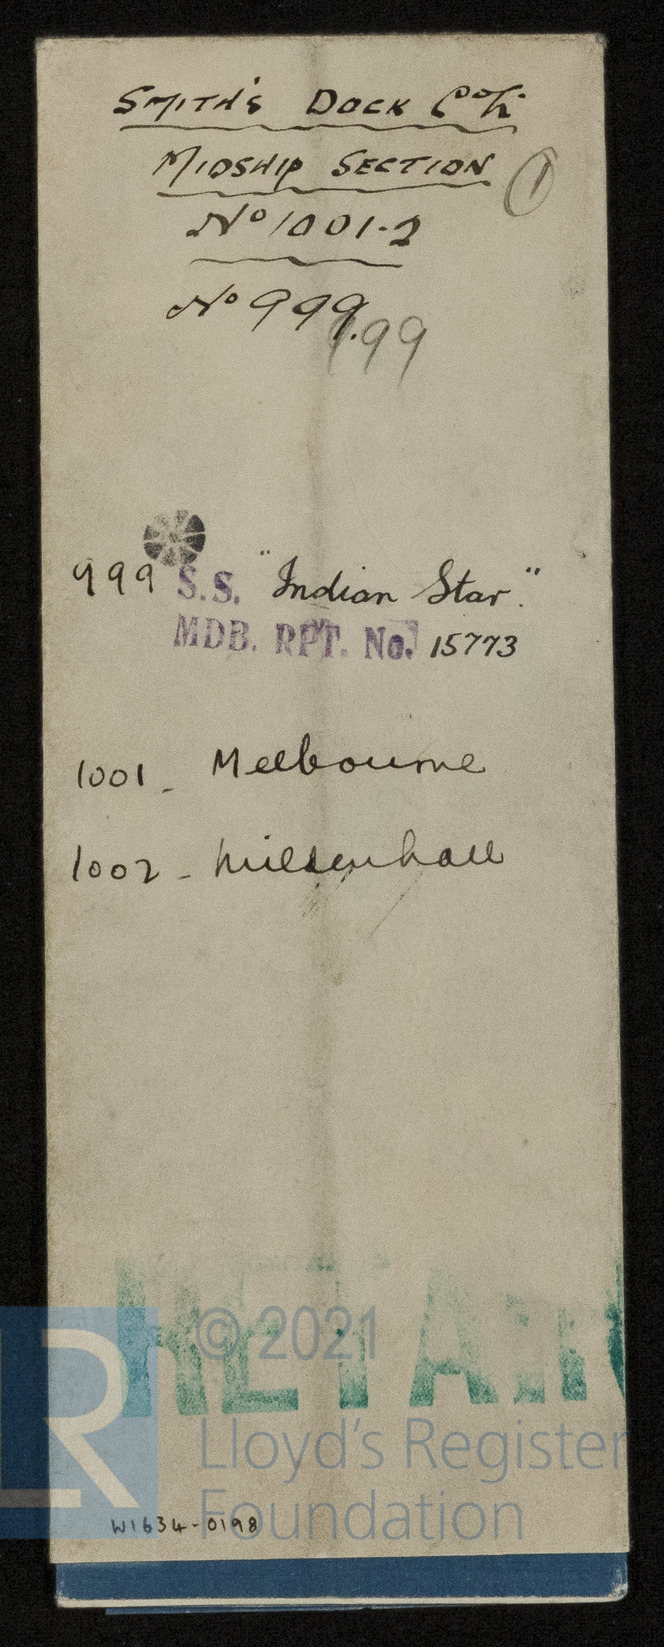 SMITH'S DOCK Co Ld
MIDSHIP SECTION
1
No 1001-2
No 999.
999
999 S.S. "Indian Star."
MDB. RPT. No. 15773
1001 - Melbourne
1002 - Mildenhall
RETAIN
© 2021
LR
Lloyd's Register
Foundation
W1634-0198